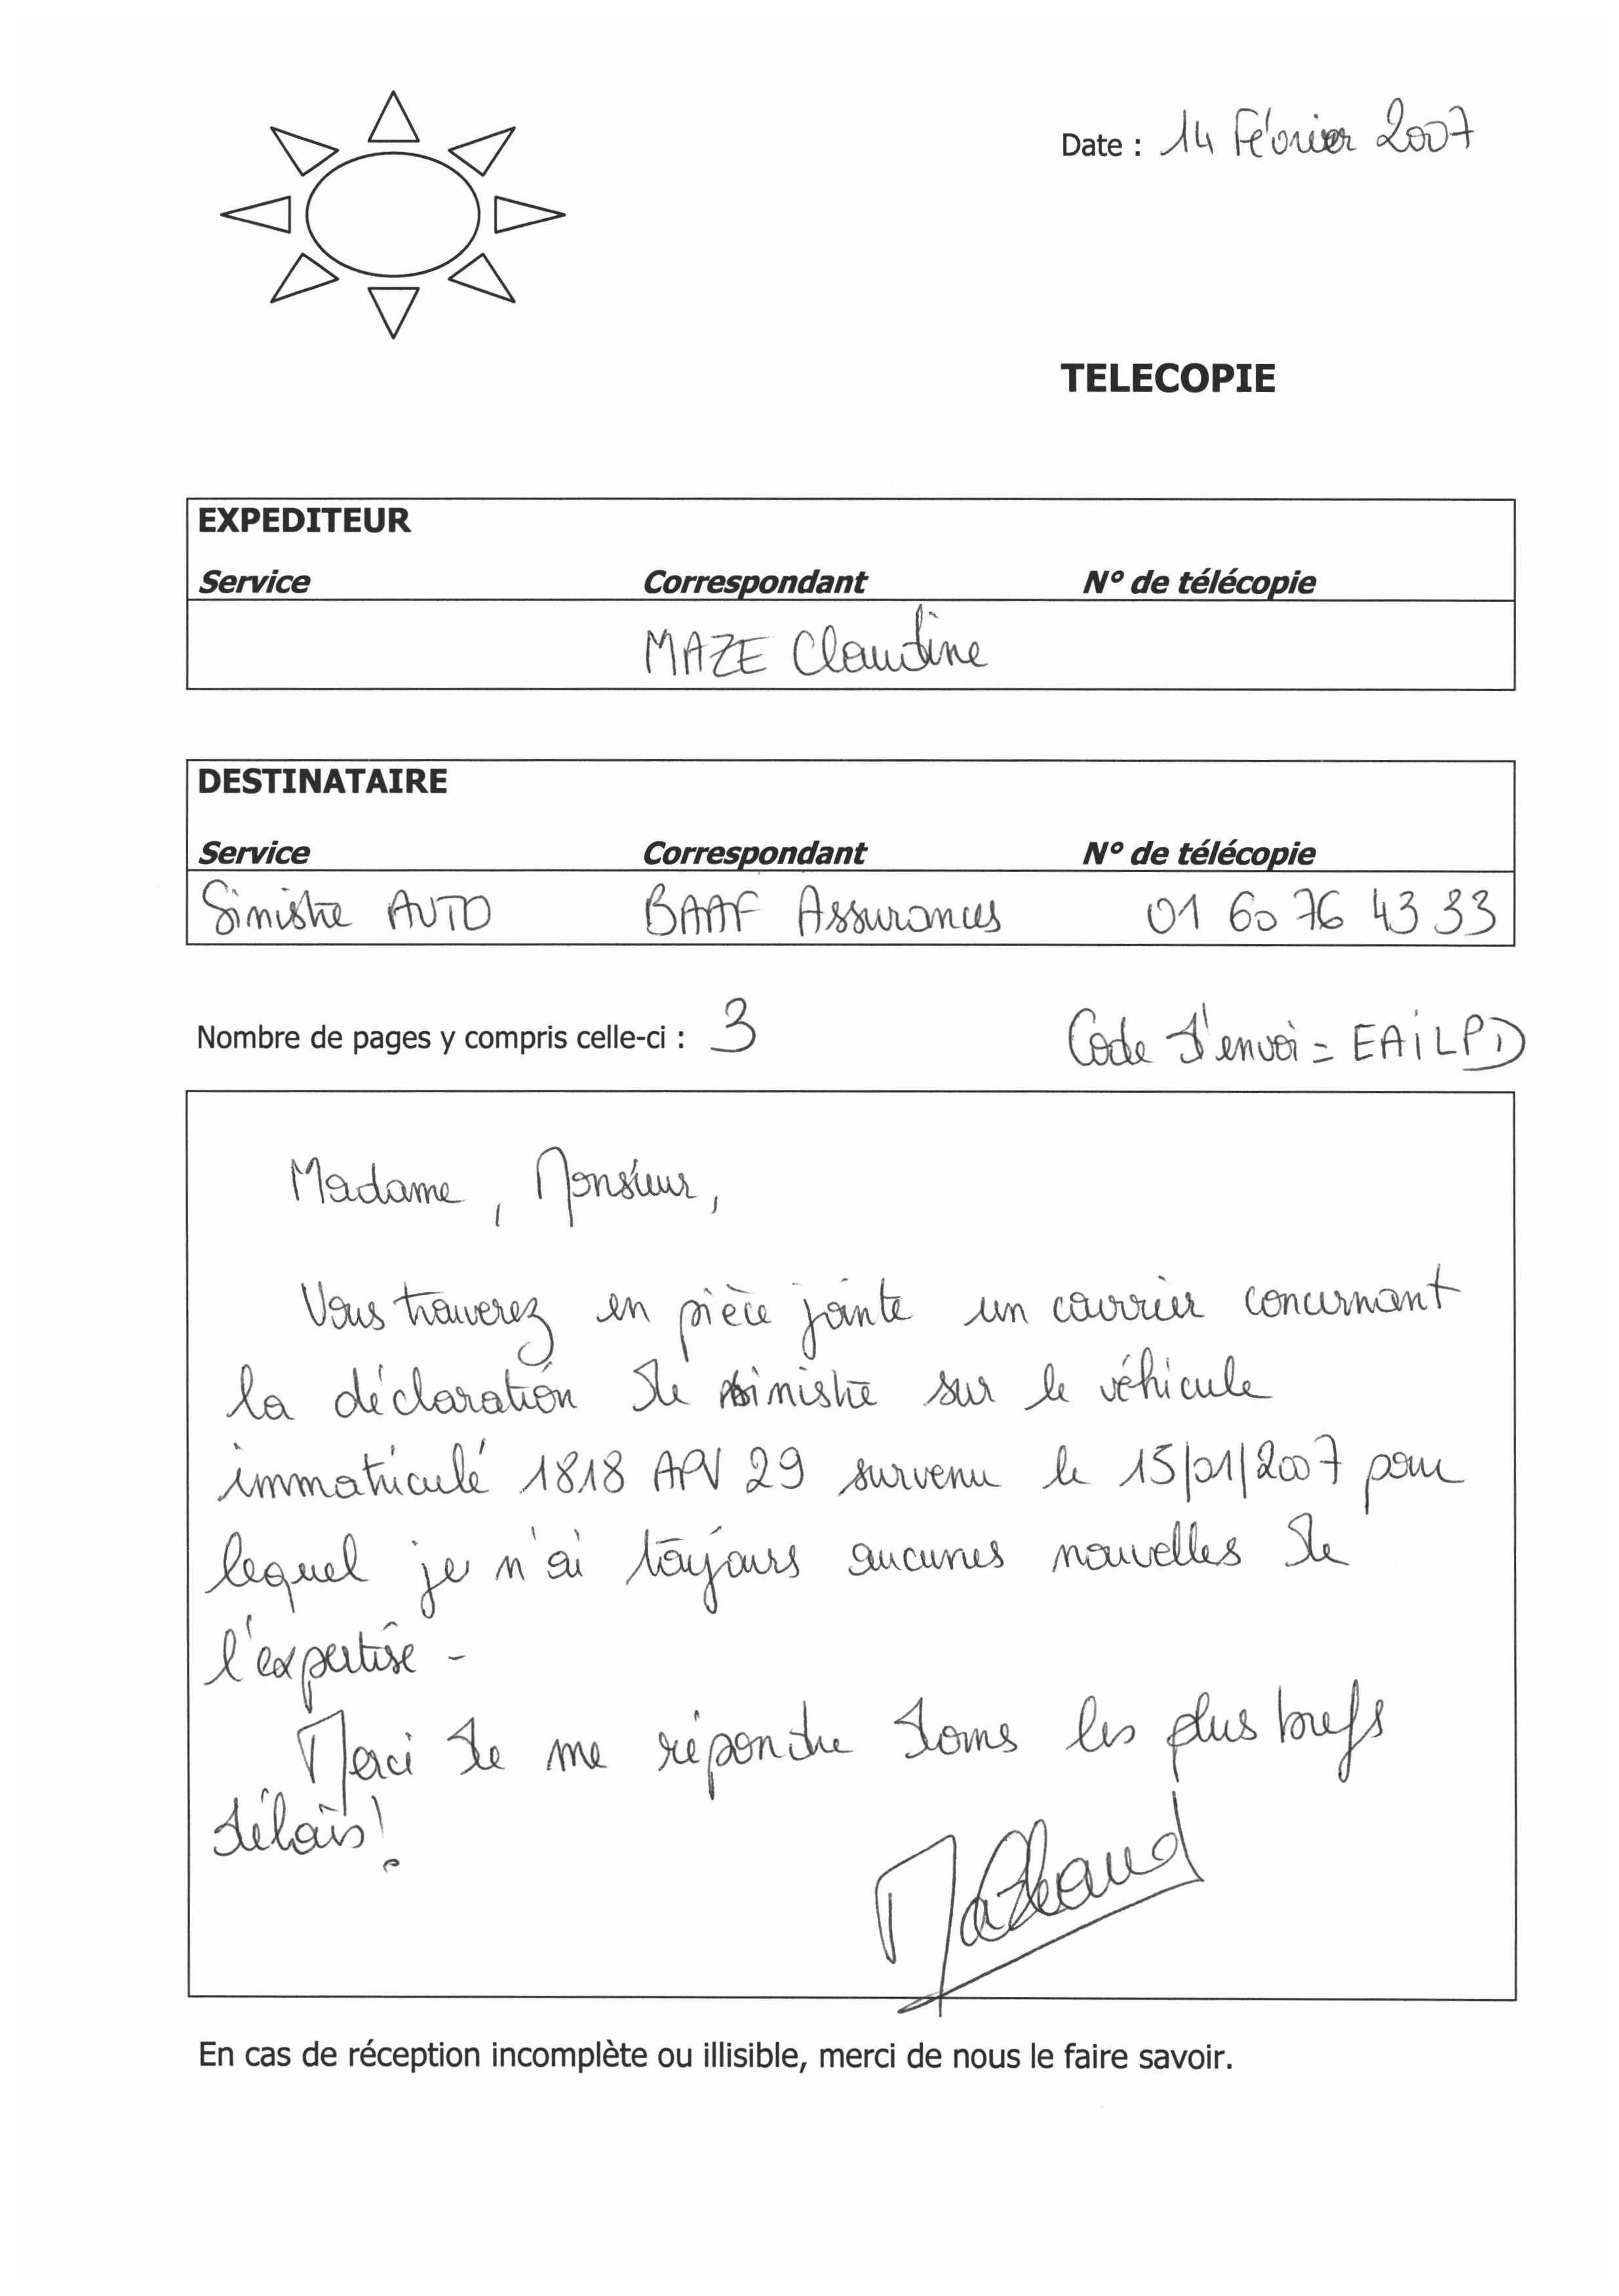 Date : 14 Février 2007
TELECOPIE
EXPEDITEUR
Service Correspondant N° de télécopie
MAZE Claudine
DESTINATAIRE
Service Correspondant N° de télécopie
Sinistre AUTO BAAF Assurances 01 60 76 43 33
Nombre de pages y compris celle-ci : 3 Code d'envoi = EAILPD
Madame, Monsieur,
Vous trouverez en pièce jointe un courrier concernant
la déclaration de sinistre sur le véhicule
immatriculé 1818 APV 29 survenu le 15/01/2007 pour
lequel je n'ai toujours aucunes nouvelles de
l'expertise -
Merci de me répondre dans les plus brefs
délais!
En cas de réception incomplète ou illisible, merci de nous le faire savoir.